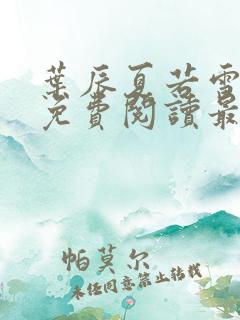 葉辰夏若雪
免費閱讀最
帕莫尔
未经同意禁止转载